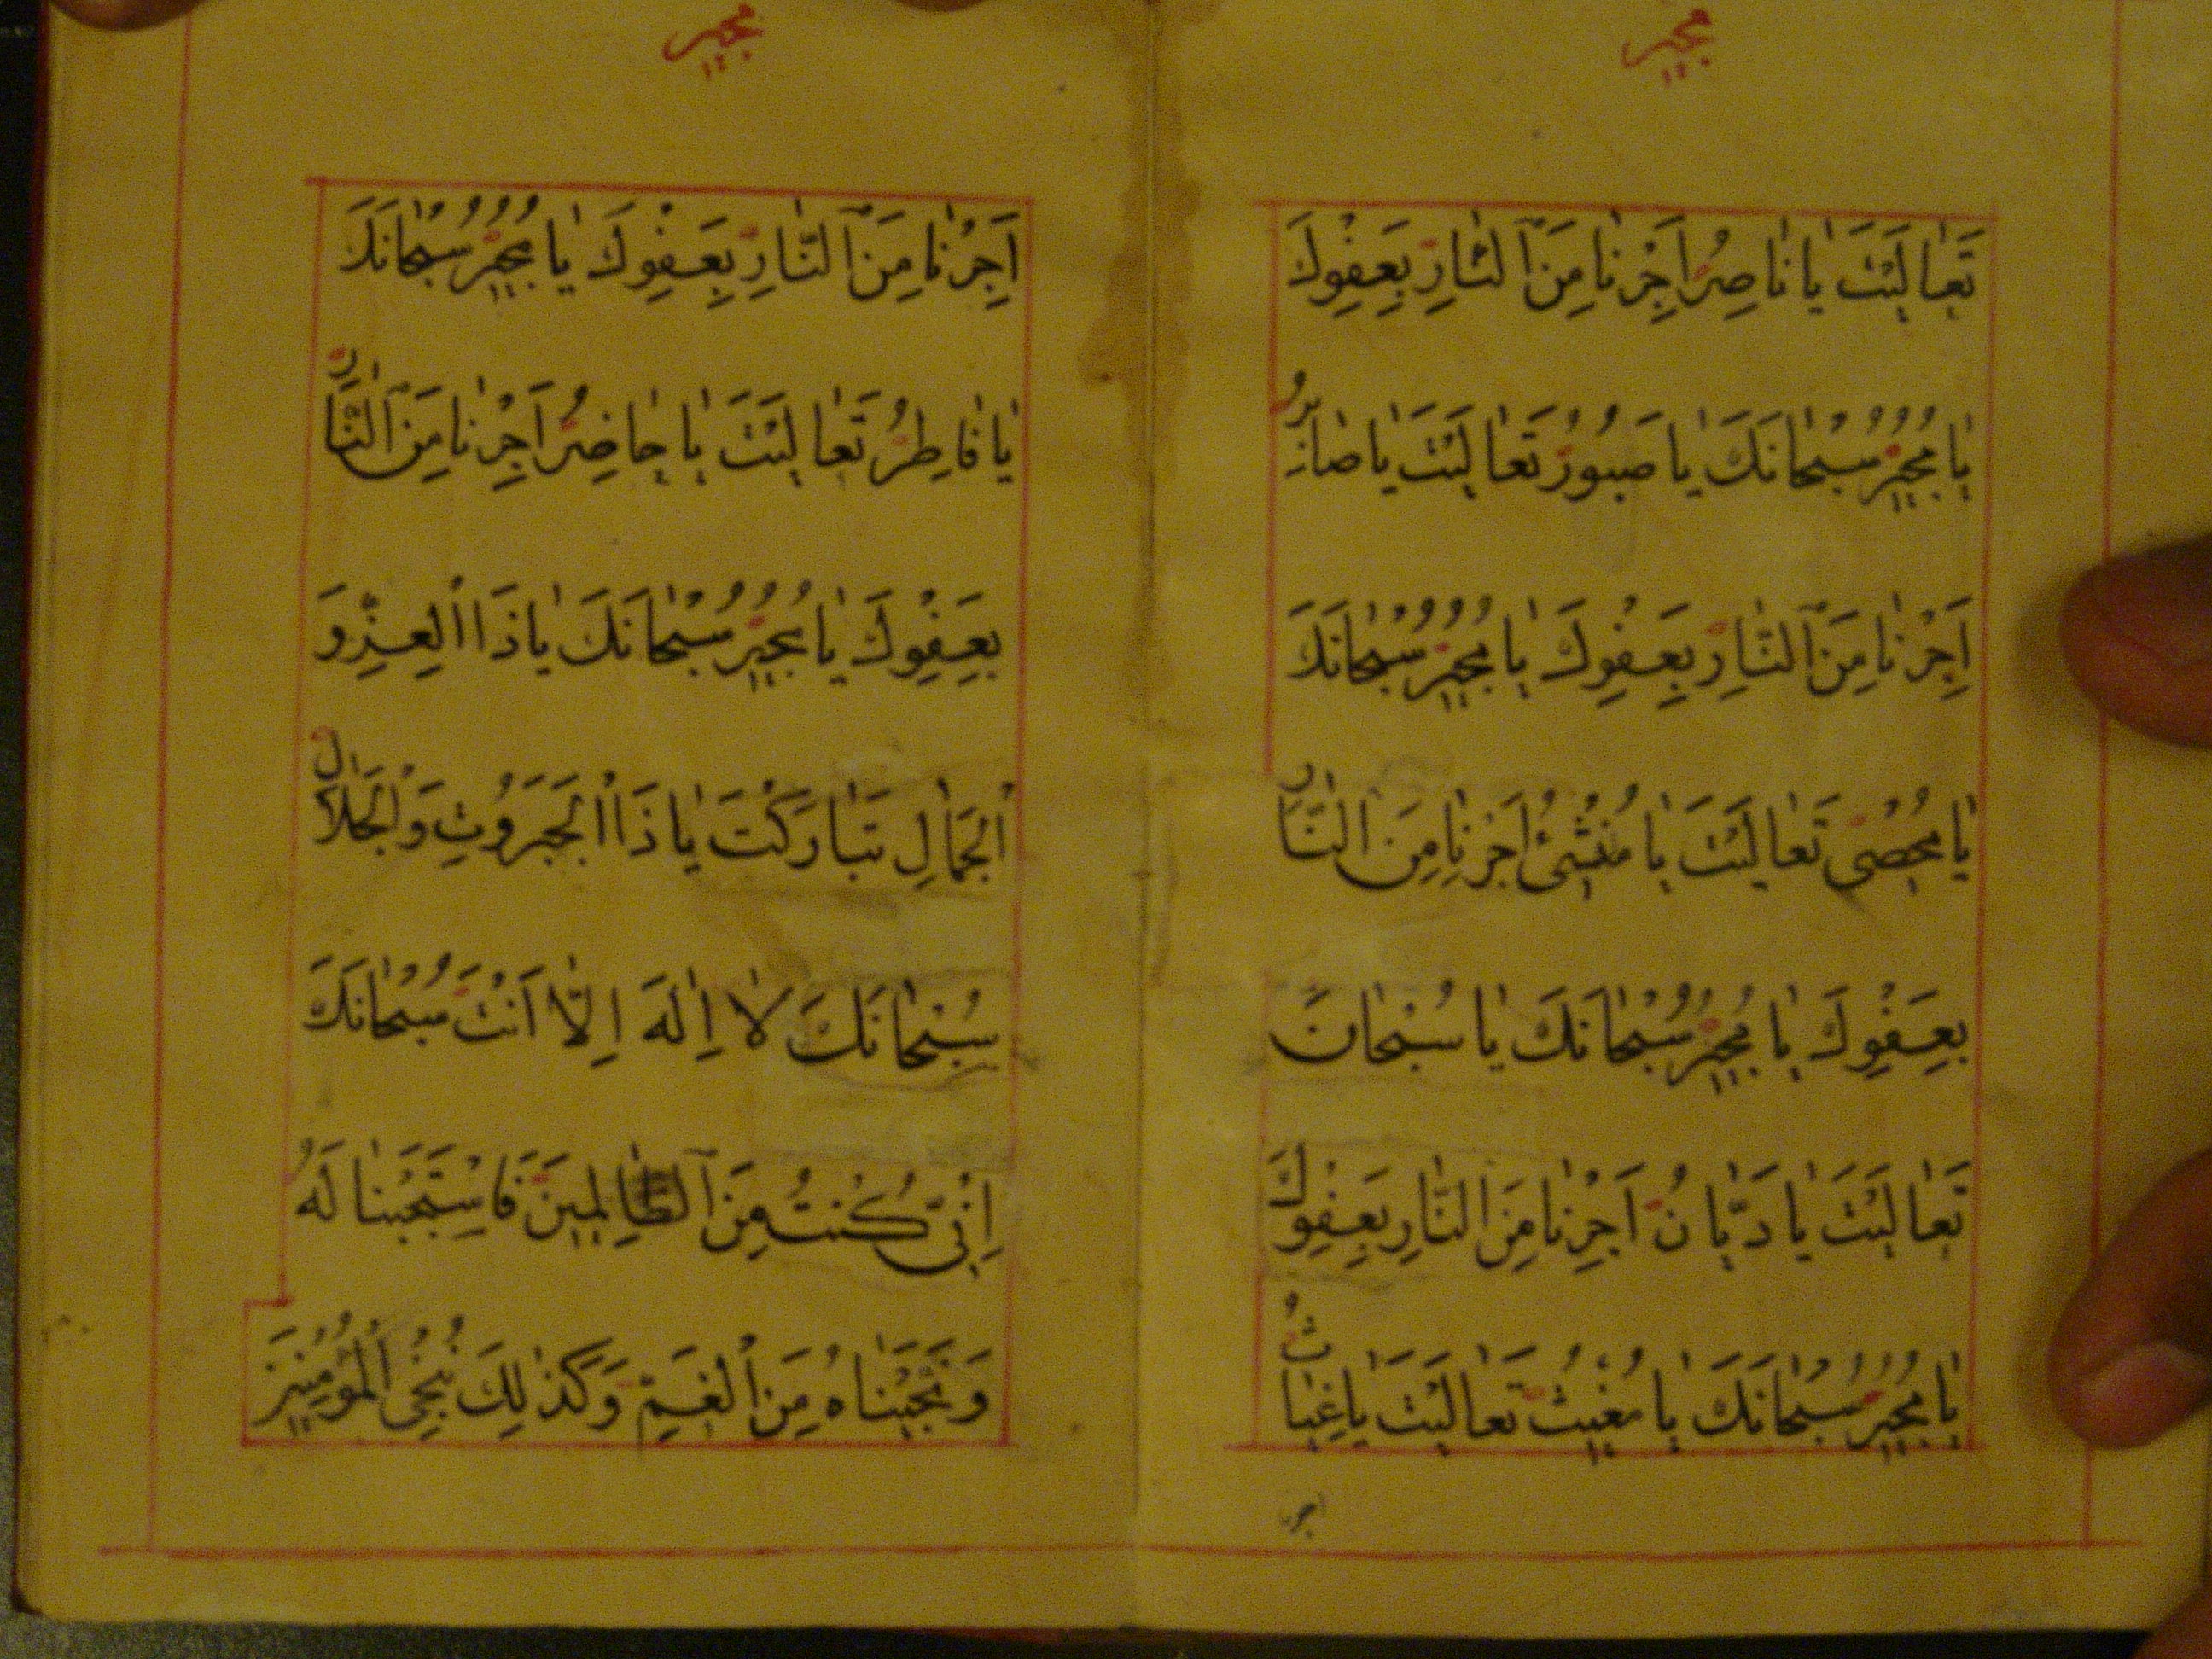 مجير
تَعٰالَيْتَ يٰا نٰاصِرُ اَجِرْنٰا مِنَ النّٰارِ بِعَفْوِكَ
يٰا مُجيرُ سُبْحٰانَكَ يٰا صَبُورُ تَعٰالَيْتَ يٰا صٰابِرُ
اَجِرْنٰا مِنَ النّٰارِ بِعَفْوِكَ يٰا مُجيرُ سُبْحٰانَكَ
يٰا مُحْصى تَعٰالَيْتَ يٰا مُنْشِئُ اَجِرْنٰا مِنَ النّٰارِ
بِعَفْوِكَ يٰا مُجيرُ سُبْحٰانَكَ يٰا سُبْحٰانَ
تَعٰالَيْتَ يٰا دَيّٰانُ اَجِرْنٰا مِنَ النّٰارِ بِعَفْوِكَ
يٰا مُجيرُ سُبْحٰانَكَ يٰا مُغيثُ تَعٰالَيْتَ يٰا غِيٰاثُ
اجر
مجير
اَجِرْنٰا مِنَ النّٰارِ بِعَفْوِكَ يٰا مُجيرُ سُبْحٰانَكَ
يٰا فٰاطِرُ تَعٰالَيْتَ يٰا حٰاضِرُ اَجِرْنٰا مِنَ النّٰارِ
بِعَفْوِكَ يٰا مُجيرُ سُبْحٰانَكَ يٰا ذَا الْعِزِّ وَ
الْجَمٰالِ تَبٰارَكْتَ يٰا ذَا الْجَبَرُوتِ وَ الْجَلٰالِ
سُبْحٰانَكَ لٰا اِلٰهَ اِلّٰا اَنْتَ سُبْحٰانَكَ
اِنّى كُنْتُ مِنَ الظّٰالِمينَ فَاسْتَجَبْنٰا لَهُ
وَ نَجَّيْنٰاهُ مِنَ الْغَمِّ وَ كَذٰلِكَ نُنْجِى الْمُؤْمِنينَ